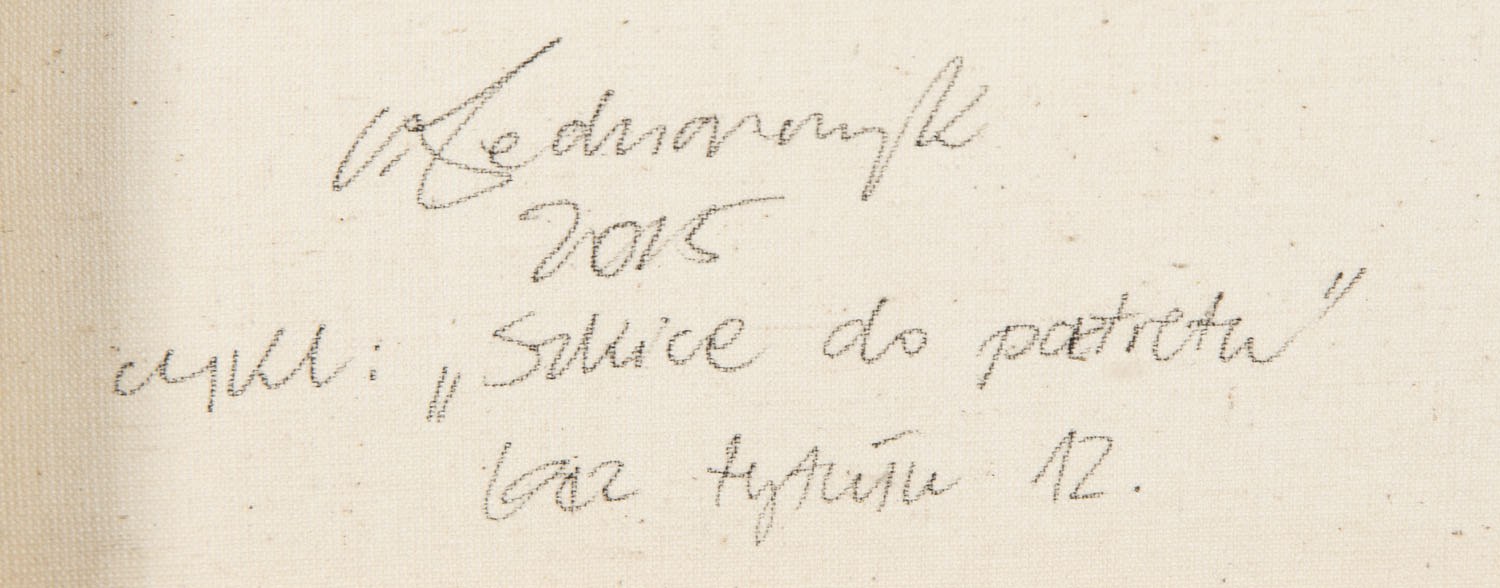 2015
cykl: „Szkice do portretu”
bez tytułu 12.